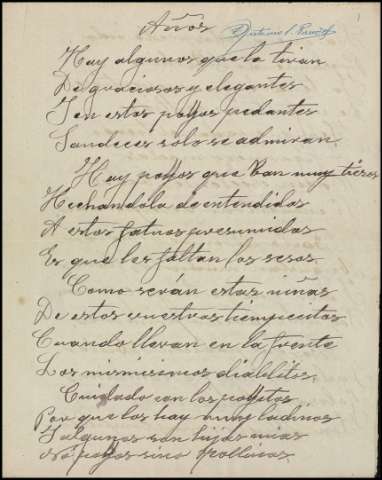 Años
Hay algunos que la tiran
De graciosos y elegantes
I en estos pollos pedantes
Sandeces solo se admiran.
Hay pollos que van muy tiesos
Hechandola de entendidos
A estos fatuos presumidos
Es que les faltan los sesos.
Como serán estas niñas
De estos vuestros tiempecitos
Cuando llevan en la frente
Los mismisimos diablitos.
Cuidado con los pollitos
Por que los hay muy ladinos
I algunos son hijos mias
No pollos sino pollinos.